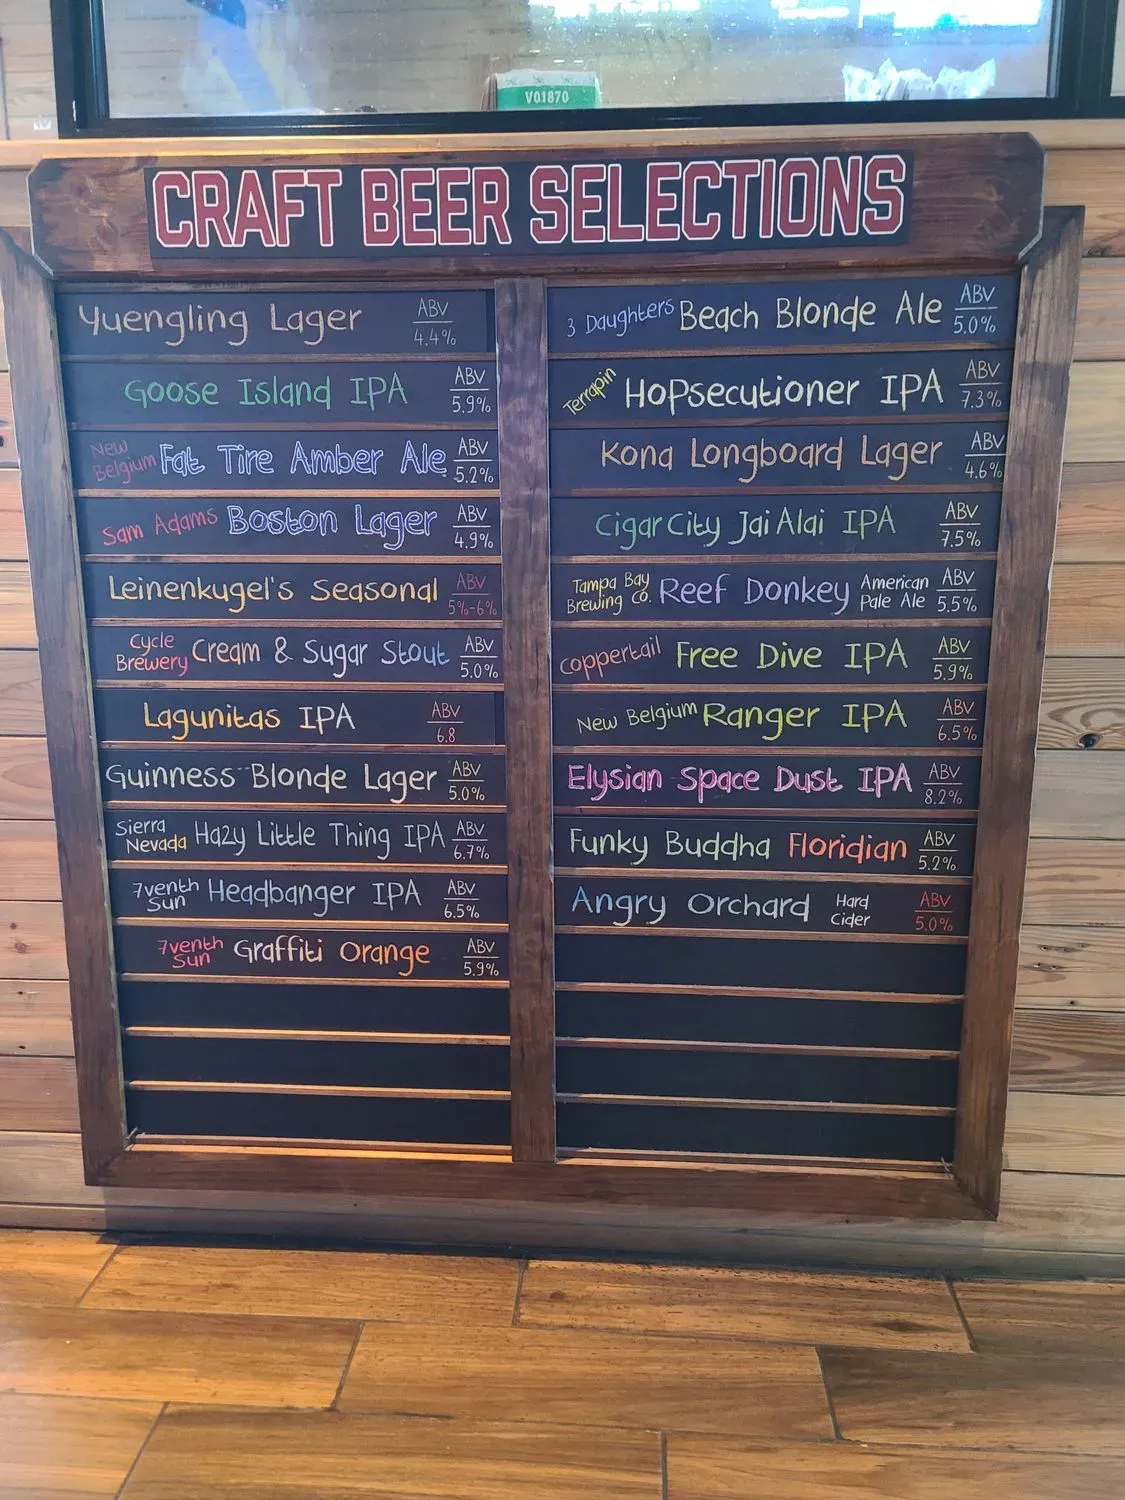 V01870
CRAFT BEER SELECTIONS
Yuengling Lager ABV 4.4%
Goose Island IPA ABV 5.9%
New Belgium Fat Tire Amber Ale ABV 5.2%
Sam Adams Boston Lager ABV 4.9%
Leinenkugel's Seasonal ABV 5%-6%
Cycle Brewery Cream & Sugar Stout ABV 5.0%
Lagunitas IPA ABV 6.8
Guinness Blonde Lager ABV 5.0%
Sierra Nevada Hazy Little Thing IPA ABV 6.7%
7venth Sun Headbanger IPA ABV 6.5%
7venth Sun Graffiti Orange ABV 5.9%
3 Daughters Beach Blonde Ale ABV 5.0%
Terrapin HoPsecutioner IPA ABV 7.3%
Kona Longboard Lager ABV 4.6%
Cigar City Jai Alai IPA ABV 7.5%
Tampa Bay Brewing Co. Reef Donkey American Pale Ale ABV 5.5%
Coppertail Free Dive IPA ABV 5.9%
New Belgium Ranger IPA ABV 6.5%
Elysian Space Dust IPA ABV 8.2%
Funky Buddha Floridian ABV 5.2%
Angry Orchard Hard Cider ABV 5.0%